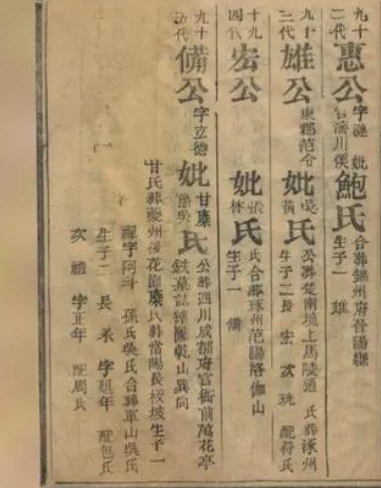 九十二代
惠公
官濟川侯
妣鮑氏
合葬錦州府晉陽縣
生子一 雄
九十三代
雄公
東郡范令
妣吳黃氏
公葬楚南境上馬陸道 氏葬涿州
生子二長 宏 次珧 配符氏
九十四代
宏公
妣張林氏
氏合葬涿州范陽洛伽山
生子一 備
九十五代
備公
字立德
妣甘糜孫吳氏
公葬四川成都府官衙前萬花亭
鉄墓誌 乾山巽向
甘氏葬夔州後花園糜氏葬當陽長板坡生子一
禪字阿斗 孫氏吳氏合葬軍山吳氏
生子二 長 字延年 配包氏
次禮 字正年 配周氏